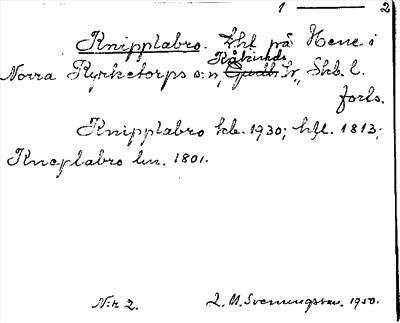 1 — 2
Knipplabro. Lht på Hene i
Kåkinds
Norra Kyrketorps s:n, Gudh. hr., Skb. l.
forts.
Knipplabro kb. 1930; hfl. 1813;
Kneplabro lm. 1801.
N:r 2. L. M. Svenungsson. 1950.